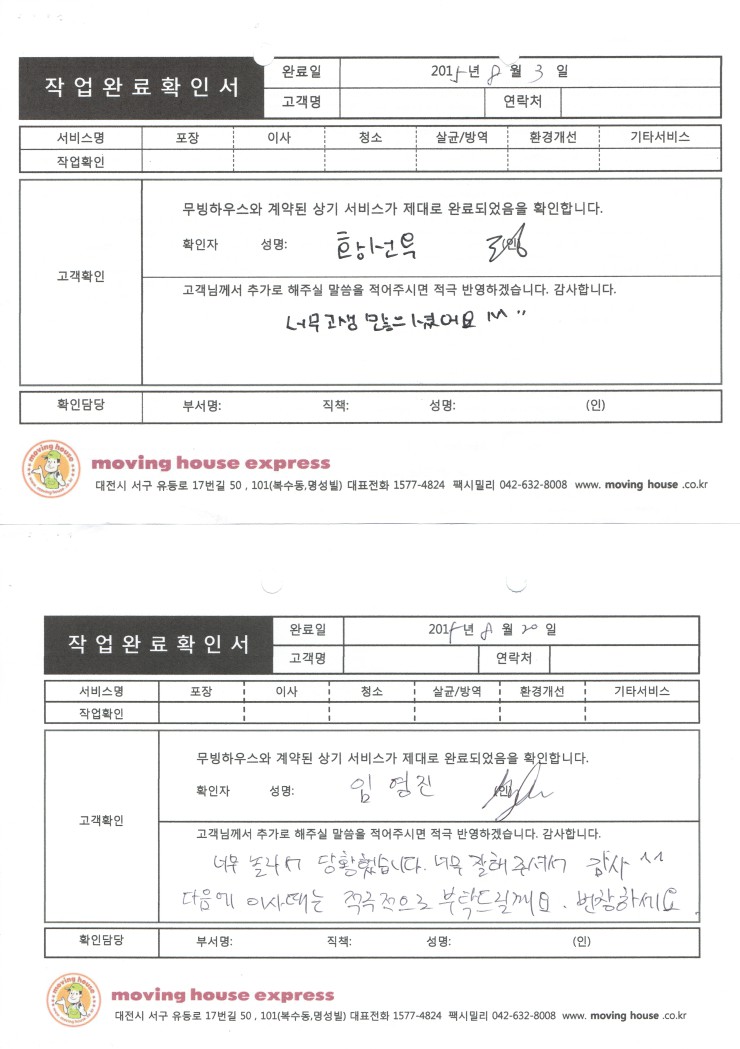 작업완료확인서
완료일 2015년 8월 3일
고객명 연락처
서비스명 포장 이사 청소 살균/방역 환경개선 기타서비스
작업확인
무빙하우스와 계약된 상기 서비스가 제대로 완료되었음을 확인합니다.
확인자 성명: 황선욱 (인)
고객확인
고객님께서 추가로 해주실 말씀을 적어주시면 적극 반영하겠습니다. 감사합니다.
너무 고생 많으셨어요 ^^"
확인담당 부서명: 직책: 성명: (인)
moving house
moving house express
대전시 서구 유등로 17번길 50 , 101(복수동,명성빌) 대표전화 1577-4824 팩시밀리 042-632-8008 www. moving house .co.kr
작업완료확인서
완료일 2015년 8월 20일
고객명 연락처
서비스명 포장 이사 청소 살균/방역 환경개선 기타서비스
작업확인
무빙하우스와 계약된 상기 서비스가 제대로 완료되었음을 확인합니다.
확인자 성명: 임영진 (인)
고객확인
고객님께서 추가로 해주실 말씀을 적어주시면 적극 반영하겠습니다. 감사합니다.
너무 놀라서 당황했습니다. 너무 잘해주셔서 감사 ^^
다음에 이사때는 적극적으로 부탁드릴께요. 번창하세요.
확인담당 부서명: 직책: 성명: (인)
moving house
moving house express
대전시 서구 유등로 17번길 50 , 101(복수동,명성빌) 대표전화 1577-4824 팩시밀리 042-632-8008 www. moving house .co.kr